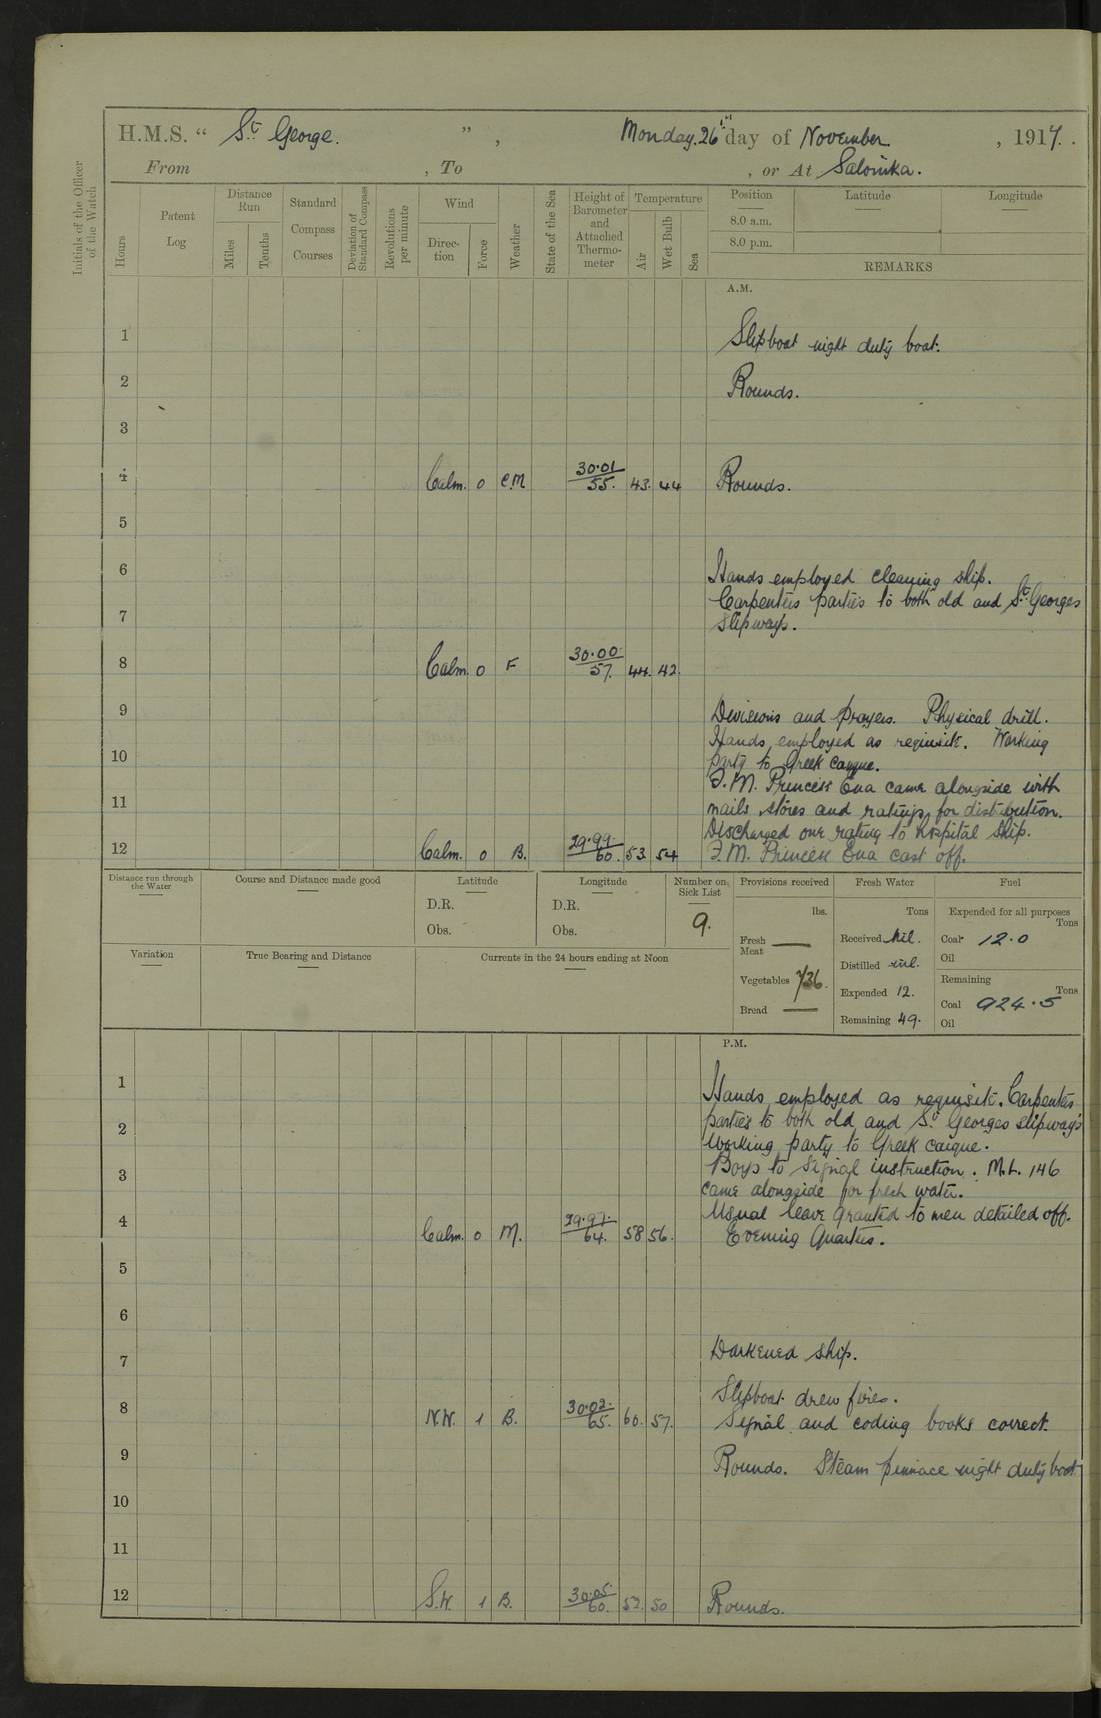 H.M.S. “ St George. ” , Monday. 26th day of November , 1917.
From , To , or At Salonika.
Initials of the Officer of the Watch
Hours
Patent Log
Distance Run
Miles
Tenths
Standard Compass Courses
Deviation of Standard Compass
Revolutions per minute
Wind
Direction
Force
Weather
State of the Sea
Height of Barometer and Attached Thermometer
Temperature
Air
Wet Bulb
Sea
Position Latitude Longitude
8.0 a.m.
8.0 p.m.
REMARKS
A.M.
1 Slipboat night duty boat.
2 Rounds.
3
4 Calm. 0 C.M 30.01/55. 43. 44 Rounds.
5
6 Hands employed cleaning ship.
Carpenters parties to both old and St. Georges
7 slipways.
8 Calm. 0 F 30.00/57. 44. 42.
9 Divisions and prayers. Physical drill.
Hands employed as requisite. Working
10 party to Greek caique.
F.M. Princess Ena came alongside with
11 mails, stores and ratings for distribution.
Discharged one rating to hospital ship.
12 Calm. 0 B. 29.99/60. 53. 54 F.M. Princess Ena cast off.
Distance run through the Water
Course and Distance made good
Latitude
D.R.
Obs.
Longitude
D.R.
Obs.
Number on Sick List
9.
Provisions received
lbs.
Fresh Meat —
Vegetables 736.
Bread —
Fresh Water
Tons
Received Nil.
Distilled nil.
Expended 12.
Remaining 49.
Fuel
Expended for all purposes
Tons
Coal 12.0
Oil
Remaining
Tons
Coal 924.5
Oil
Variation
True Bearing and Distance
Currents in the 24 hours ending at Noon
P.M.
1 Hands employed as requisite. Carpenters
parties to both old and St Georges slipways
2 Working party to Greek caique.
3 Boys to signal instruction. M.L. 146
came alongside for fresh water.
4 Usual leave granted to men detailed off.
Calm. 0 M. 29.97/64. 58 56. Evening Quarters.
5
6
7 Darkened ship.
Slipboat drew fires.
8 N.W. 1 B. 30.02/65. 60. 57. Signal and coding books correct.
9 Rounds. Steam pinnace night duty boat
10
11
12 S.W. 1 B. 30.05/60. 52. 50 Rounds.